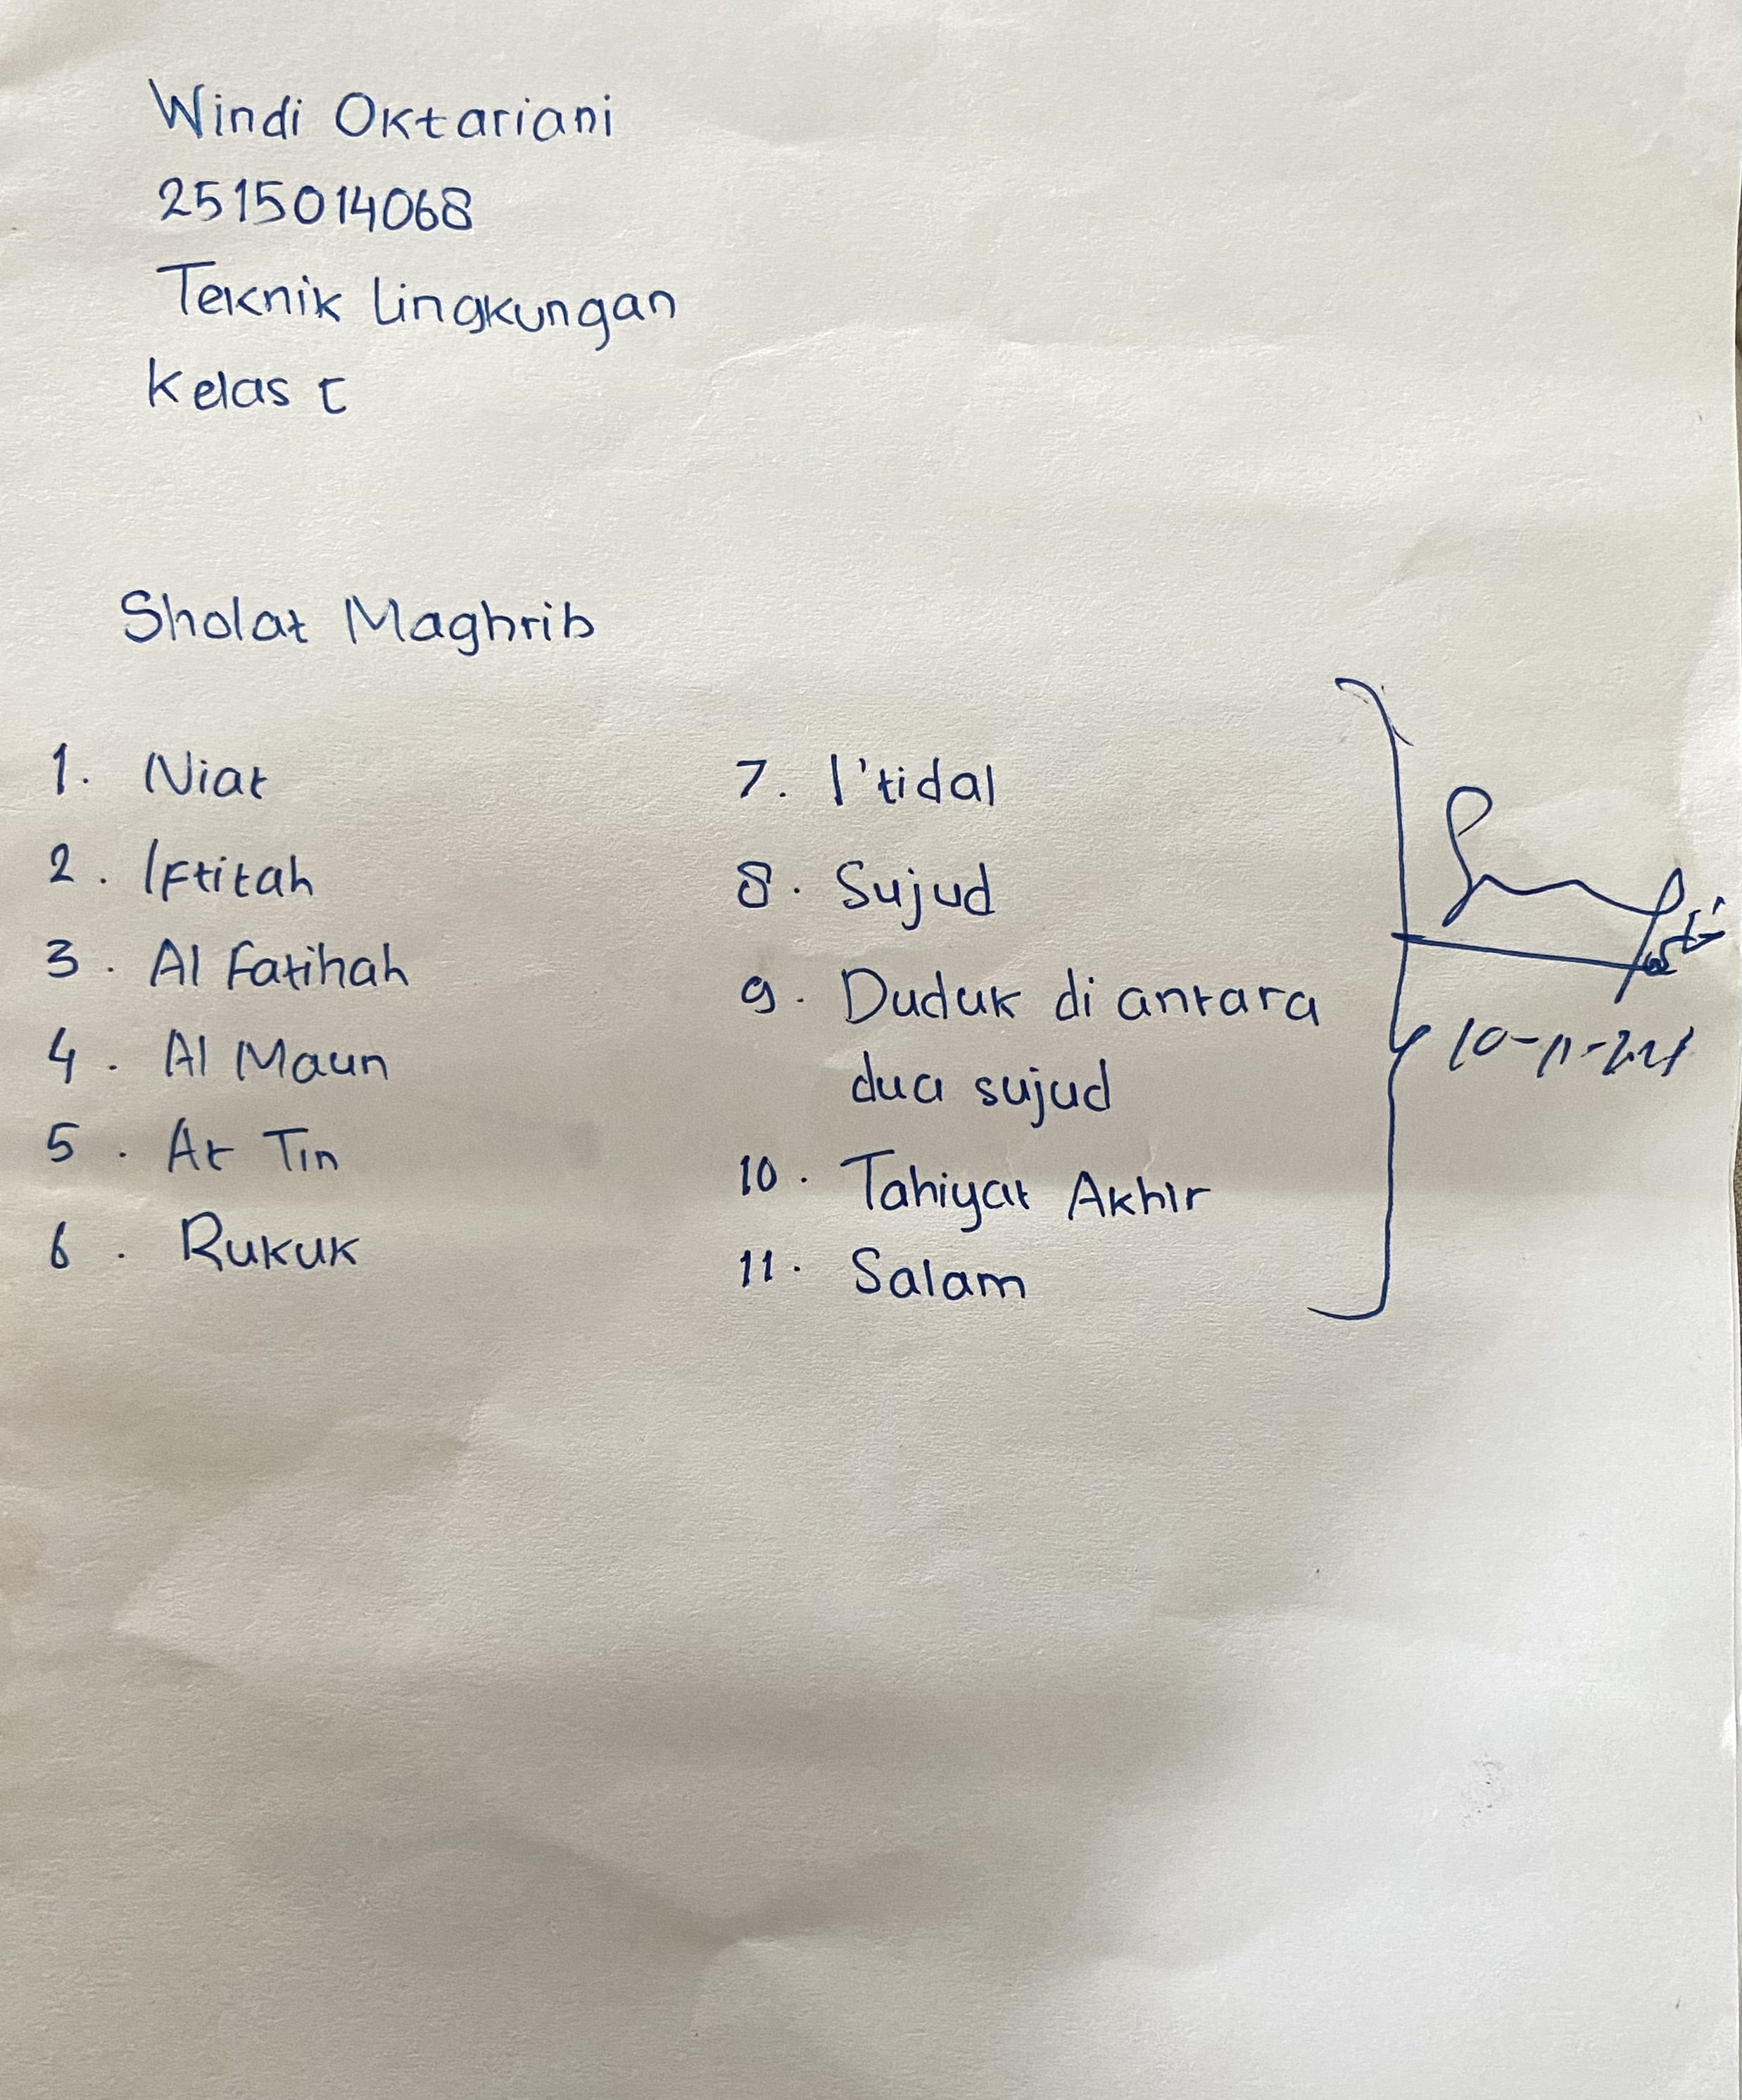 Windi Oktariani
2515014068
Teknik Lingkungan
Kelas C
Sholat Maghrib
1. Niat
2. Iftitah
3. Al Fatihah
4. Al Maun
5. At Tin
6. Rukuk
7. I'tidal
8. Sujud
9. Duduk di antara
dua sujud
10. Tahiyat Akhir
11. Salam